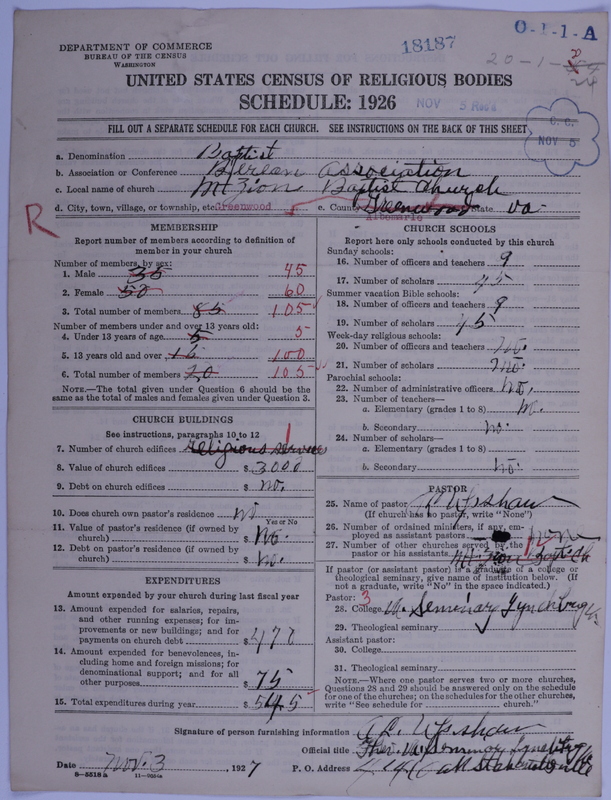 O-1-1-A
DEPARTMENT OF COMMERCE
BUREAU OF THE CENSUS
WASHINGTON
18187
20-1-
24
UNITED STATES CENSUS OF RELIGIOUS BODIES
SCHEDULE: 1926
NOV 5 Rec'd
C. C.
NOV 5
FILL OUT A SEPARATE SCHEDULE FOR EACH CHURCH. SEE INSTRUCTIONS ON THE BACK OF THIS SHEET
a. Denomination Baptist
b. Association or Conference Berean Association
c. Local name of church Mt Zion Baptist Church
d. City, town, village, or township, etc. Greenwood e. County Greenwood State Va
Albemarle
R
MEMBERSHIP
Report number of members according to definition of member in your church
Number of members, by sex:
1. Male 35 45
2. Female 50 60
3. Total number of members 85 105
Number of members under and over 13 years old:
4. Under 13 years of age 5 5
5. 13 years old and over 15 100
6. Total number of members 20 105
NOTE.—The total given under Question 6 should be the same as the total of males and females given under Question 3.
CHURCH BUILDINGS
See instructions, paragraphs 10 to 12
7. Number of church edifices religious service 1
8. Value of church edifices $ 3000
9. Debt on church edifices $ no.
10. Does church own pastor's residence? no
Yes or No
11. Value of pastor's residence (if owned by church) $ No.
12. Debt on pastor's residence (if owned by church) $ No.
EXPENDITURES
Amount expended by your church during last fiscal year
13. Amount expended for salaries, repairs, and other running expenses; for improvements or new buildings; and for payments on church debt $ 470
14. Amount expended for benevolences, including home and foreign missions; for denominational support; and for all other purposes $ 75
15. Total expenditures during year $ 545
CHURCH SCHOOLS
Report here only schools conducted by this church
Sunday schools:
16. Number of officers and teachers 9
17. Number of scholars 45
Summer vacation Bible schools:
18. Number of officers and teachers 9
19. Number of scholars 45
Week-day religious schools:
20. Number of officers and teachers No.
21. Number of scholars No.
Parochial schools:
22. Number of administrative officers No.
23. Number of teachers—
a. Elementary (grades 1 to 8) No.
b. Secondary No.
24. Number of scholars—
a. Elementary (grades 1 to 8)
b. Secondary No.
PASTOR
25. Name of pastor Upshaw
(If church has no pastor, write "None")
26. Number of ordained ministers, if any, employed as assistant pastors
27. Number of other churches served by the pastor or his assistants
If pastor (or assistant pastor) is a graduate of a college or theological seminary, give name of institution below. (If not a graduate, write "No" in the space indicated.)
Pastor: 3
28. College Va. Seminary Lynchburg Va
29. Theological seminary
Assistant pastor:
30. College
31. Theological seminary
NOTE.—Where one pastor serves two or more churches, Questions 28 and 29 should be answered only on the schedule for one of the churches; on the schedules for the other churches, write "See schedule for church."
Signature of person furnishing information Upshaw
Official title Seminary Lynchburg
Date Nov. 3, 1927 P. O. Address
8—5518a